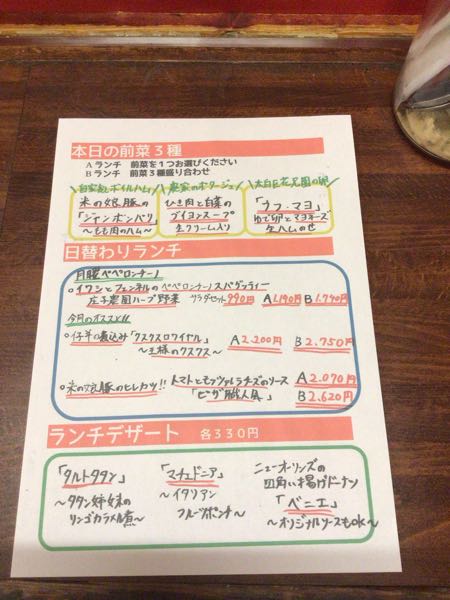 本日の前菜３種
Aランチ　前菜を１つお選びください
Bランチ　前菜３種盛り合わせ
自家製ボイルハム
農家のポタージュ
太白区花兄園の卵
米の娘豚の
「ジャンボンパリ」
〜もも肉のハム〜
ひき肉と白菜の
ブイヨンスープ
生クリーム入り
「ウフ・マヨ」
ゆで卵とマヨネーズ
生ハムのせ
日替わりランチ
月曜ペペロンチーノ
○イワシとフェンネルのペペロンチーノスパゲッティー
庄子農園ハーブ野菜 サラダセット 990円 A1.190円 B1.740円
今月のオススメ!!
○仔羊の煮込み「クスクスロワイヤル」 A2.200円 B2.750円
〜王様のクスクス〜
○米の娘豚のヒレカツ!! トマトとモッツァレラチーズのソース A2.070円
「ピザ職人風」 B2.620円
ランチデザート　各３３０円
「タルトタタン」
〜タタン姉妹の
リンゴカラメル煮〜
「マチェドニア」
〜イタリアン
フルーツポンチ〜
ニューオーリンズの
四角い揚げドーナツ
「ベニエ」
〜オリジナルソースもOK〜